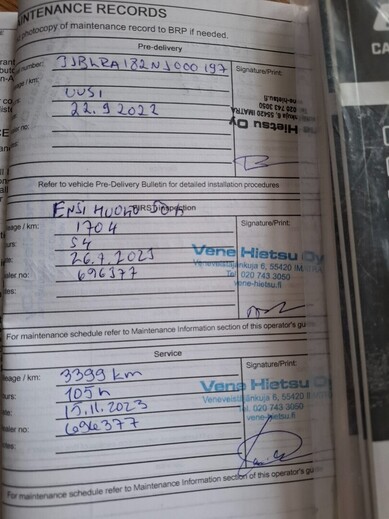 INTENANCE RECORDS
photocopy of maintenance record to BRP if needed.
Pre-delivery
number: 3JBLRA182NJ000197
Signature/Print:
age / km:
UUSI
22.9 2022
er no:
Hietsu Oy
kuja 6, 55420 IMATRA
020 743 3050
ne-hietsu.fi
Refer to vehicle Pre-Delivery Bulletin for detailed installation procedures
ENSI HUOLTO
inspection
eage / km: 1704
Signature/Print:
urs: 54
te: 26.7.2023
ealer no: 696377
tes:
Vene Hietsu Oy
Veneveistäjänkuja 6, 55420 IM
Tel. 020 743 3050
vene-hietsu.fi
For maintenance schedule refer to Maintenance Information section of this operator's gu
Service
eage / km: 3399 km
Signature/Print:
urs: 105 h
te: 15.11.2023
ealer no: 696377
tes:
Vene Hietsu O
Veneveistäjänkuja 6, 55420 I
Tel. 020 743 3050
vene-hietsu.fi
For maintenance schedule refer to Maintenance Information section of this operator's gu
CA